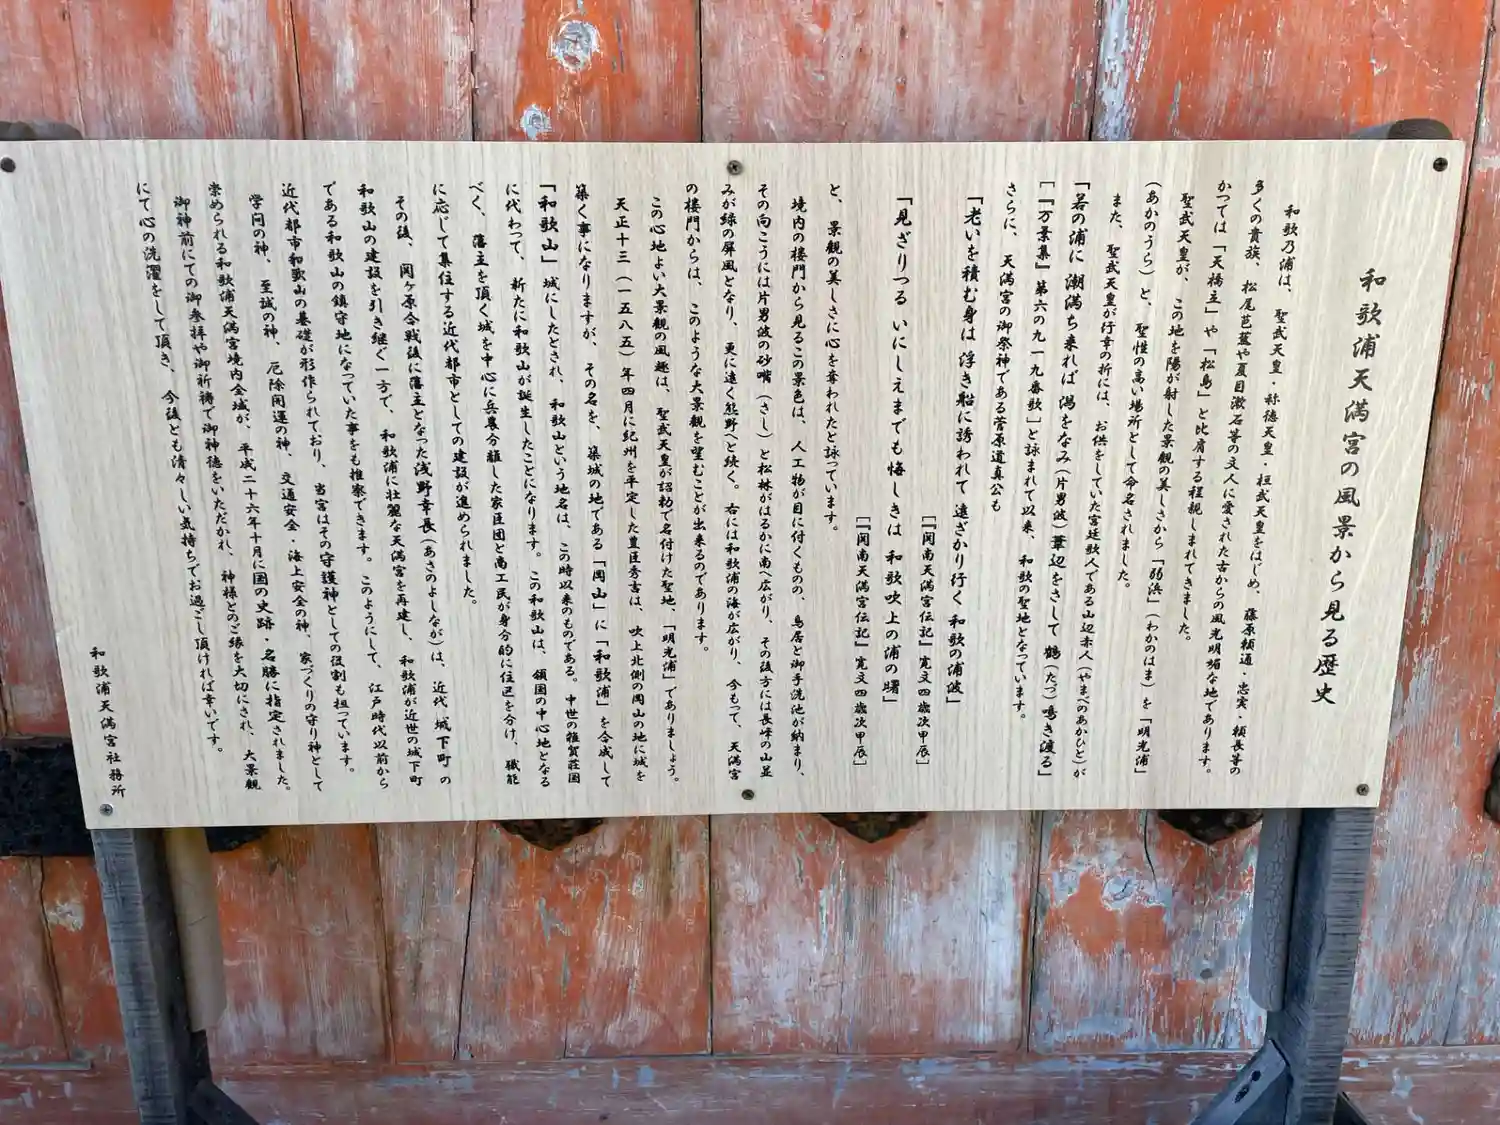 和歌浦天満宮の風景から見る歴史
和歌乃浦は、聖武天皇・称徳天皇・桓武天皇をはじめ、藤原頼通・忠実・頼長等の
多くの貴族、松尾芭蕉や夏目漱石等の文人に愛された古からの風光明媚な地であります。
かつては「天橋立」や「松島」と比肩する程親しまれてきました。
聖武天皇が、この地を陽が射した景観の美しさから「弱浜」(わかのはま)を「明光浦」
(あかのうら)と、聖性の高い場所として命名されました。
また、聖武天皇が行幸の折には、お供をしていた宮廷歌人である山辺赤人(やまべのあかひと)が
「若の浦に 潮満ち来れば 潟をなみ(片男波)葦辺をさして 鶴(たづ)鳴き渡る」
[『万葉集』第六の九一九番歌]と詠まれて以来、和歌の聖地となっています。
さらに、天満宮の御祭神である菅原道真公も
「老いを積む身は 浮き船に誘われて 遠ざかり行く 和歌の浦波」
[『関南天満宮伝記』寛文四歳次甲辰]
「見ざりつる いにしえまでも悔しきは 和歌吹上の浦の曙」
[『関南天満宮伝記』寛文四歳次甲辰]
と、景観の美しさに心を奪われたと詠っています。
境内の楼門から見るこの景色は、人工物が目に付くものの、鳥居と御手洗池が納まり、
その向こうには片男波の砂嘴(さし)と松林がはるかに南へ広がり、その後方には長峰の山並
みが緑の屏風となり、更に遠く熊野へと続く。右には和歌浦の海が広がり、今もって、天満宮
の楼門からは、このような大景観を望むことが出来るのであります。
この心地よい大景観の風趣は、聖武天皇が詔勅で名付けた聖地、「明光浦」でありましょう。
天正十三(一五八五)年四月に紀州を平定した豊臣秀吉は、吹上北側の岡山の地に城を
築く事になりますが、その名を、築城の地である「岡山」に「和歌浦」を合成して
「和歌山」城にしたとされ、和歌山という地名は、この時以来のものである。中世の雑賀荘園
に代わって、新たに和歌山が誕生したことになります。この和歌山は、領国の中心地となる
べく、藩主を頂く城を中心に兵農分離した家臣団と商工民が身分的に住区を分け、職能
に応じて集住する近代都市としての建設が進められました。
その後、関ヶ原合戦後に藩主となった浅野幸長(あさのよしなが)は、近代城下町の
和歌山の建設を引き継ぐ一方で、和歌浦に壮麗な天満宮を再建し、和歌浦が近世の城下町
である和歌山の鎮守地になっていた事をも推察できます。このようにして、江戸時代以前から
近代都市和歌山の基礎が形作られており、当宮はその守護神としての役割も担っています。
学問の神、至誠の神、厄除開運の神、交通安全・海上安全の神、家づくりの守り神として
崇められる和歌浦天満宮境内全域が、平成二十六年十月に国の史跡・名勝に指定されました。
御神前にての御参拝や御祈祷で御神徳をいただかれ、神様とのご縁を大切にされ、大景観
にて心の洗濯をして頂き、今後とも清々しい気持ちでお過ごし頂ければ幸いです。
和歌浦天満宮社務所